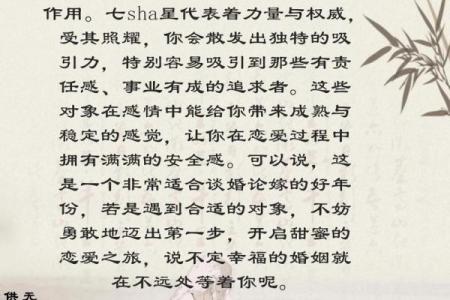 作用。七sha星代表着力量与权威，
受其照耀，你会散发出独特的吸
引力，特别容易吸引到那些有责
任感、事业有成的追求者。这些
对象在感情中能给你带来成熟与
稳定的感觉，让你在恋爱过程中
拥有满满的安全感。可以说，这
是一个非常适合谈婚论嫁的好年
份，若是遇到合适的对象，不妨
勇敢地迈出第一步，开启甜蜜的
恋爱之旅，说不定幸福的婚姻就
在不远处等着你呢。
供 天